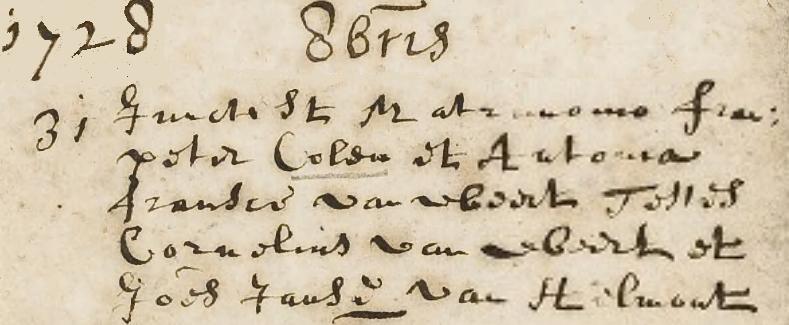 1728 8bris
31 Juncti St Matrimonio fran:
peter Colen et Antonia
fransē van Weert Testes
Cornelius van Weert et
Joēs Jansē van Helmont